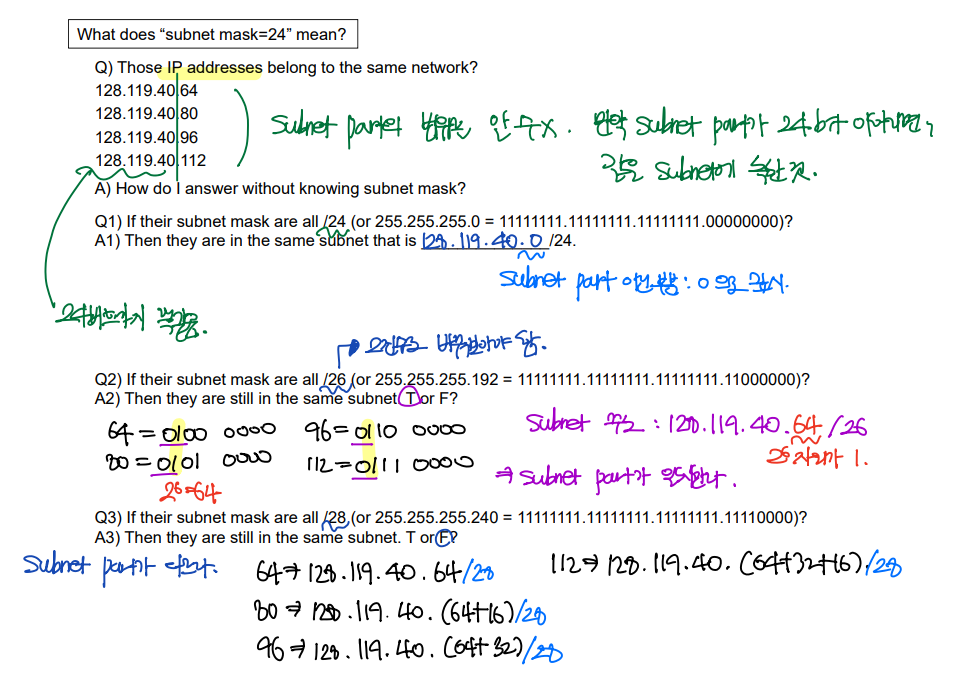 What does “subnet mask=24” mean?
Q) Those IP addresses belong to the same network?
128.119.40.64
128.119.40.80
128.119.40.96
128.119.40.112
Subnet part의 범위는 알 수 X. 만약 Subnet part가 24bit 이하라면,
같은 Subnet에 속한 것.
A) How do I answer without knowing subnet mask?
Q1) If their subnet mask are all /24 (or 255.255.255.0 = 11111111.11111111.11111111.00000000)?
A1) Then they are in the same subnet that is 128.119.40.0 /24.
Subnet part 이외 : 0으로 표시.
24비트까지 똑같음.
2진수로 바꿔봐야 함.
Q2) If their subnet mask are all /26 (or 255.255.255.192 = 11111111.11111111.11111111.11000000)?
A2) Then they are still in the same subnet. T or F?
64 = 0100 0000 96 = 0110 0000
80 = 0101 0000 112 = 0111 0000
2⁶=64
Subnet 주소 : 128.119.40.64 /26
26자리가 1.
⇒ Subnet part가 일치한다.
Q3) If their subnet mask are all /28 (or 255.255.255.240 = 11111111.11111111.11111111.11110000)?
A3) Then they are still in the same subnet. T or F?
Subnet part가 다르다.
64 ⇒ 128.119.40.64/28
80 ⇒ 128.119.40.(64+16)/28
96 ⇒ 128.119.40.(64+32)/28
112 ⇒ 128.119.40.(64+32+16)/28